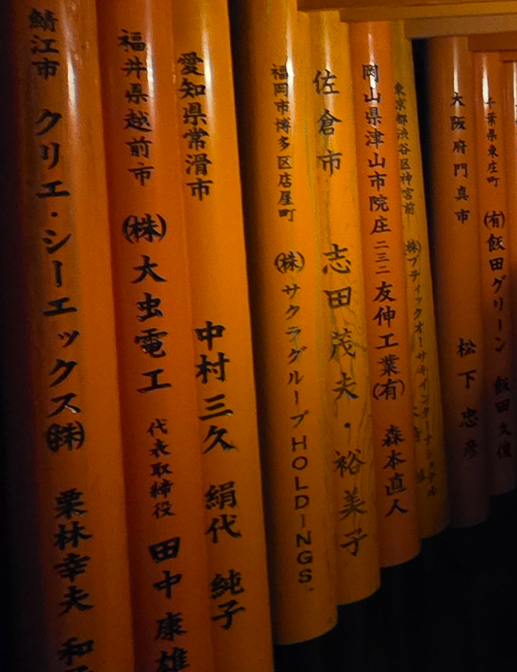 鯖江市 クリエ・シーエックス㈱ 栗林幸夫 和
福井県越前市 ㈱大虫電工 代表取締役 田中康雄
愛知県常滑市 中村三久 絹代 純子
福岡市博多区店屋町 ㈱サクラグループHOLDINGS.
佐倉市 志田茂夫・裕美子
岡山県津山市院庄二三二 友伸工業㈲ 森本直人
東京都渋谷区神宮前 ㈱ブティックオーサキインターナショナル
大阪府門真市 松下忠彦
千葉県東庄町 ㈲飯田グリーン 飯田文俊